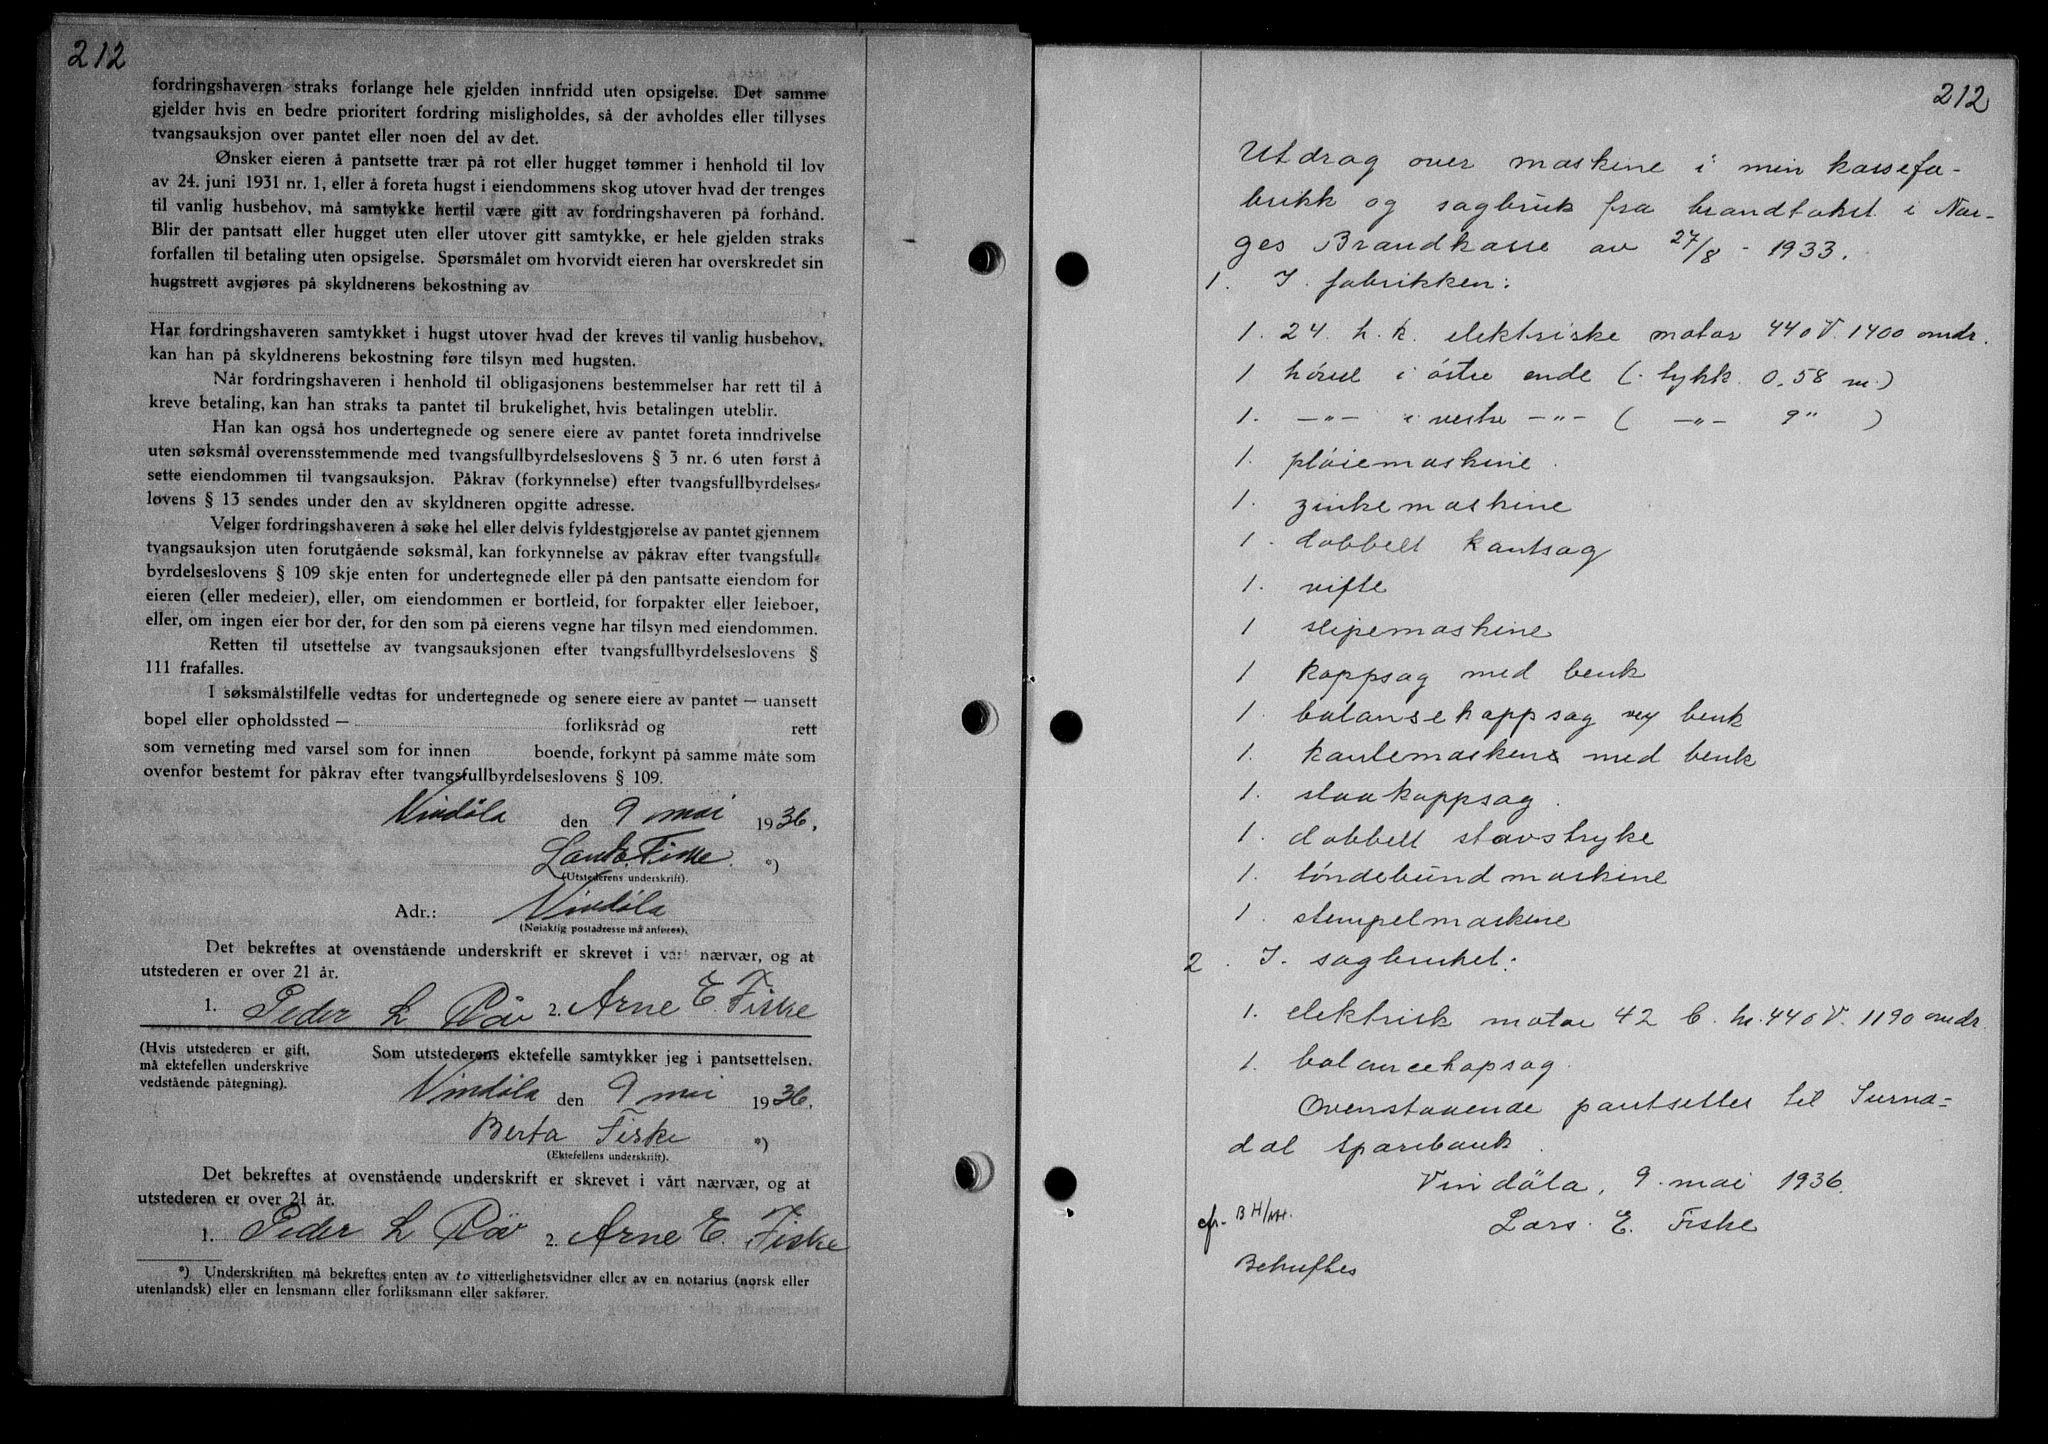 212
fordringshaveren straks forlange hele gjelden innfridd uten opsigelse. Det samme
gjelder hvis en bedre prioritert fordring misligholdes, så der avholdes eller tillyses
tvangsauksjon over pantet eller noen del av det.
Ønsker eieren å pantsette trær på rot eller hugget tømmer i henhold til lov
av 24. juni 1931 nr. 1, eller å foreta hugst i eiendommens skog utover hvad der trenges
til vanlig husbehov, må samtykke hertil være gitt av fordringshaveren på forhånd.
Blir der pantsatt eller hugget uten eller utover gitt samtykke, er hele gjelden straks
forfallen til betaling uten opsigelse. Spørsmålet om hvorvidt eieren har overskredet sin
hugstrett avgjøres på skyldnerens bekostning av
Har fordringshaveren samtykket i hugst utover hvad der kreves til vanlig husbehov,
kan han på skyldnerens bekostning føre tilsyn med hugsten.
Når fordringshaveren i henhold til obligasjonens bestemmelser har rett til å
kreve betaling, kan han straks ta pantet til brukelighet, hvis betalingen uteblir.
Han kan også hos undertegnede og senere eiere av pantet foreta inndrivelse
uten søksmål overensstemmende med tvangsfullbyrdelseslovens § 3 nr. 6 uten først å
sette eiendommen til tvangsauksjon. Påkrav (forkynnelse) efter tvangsfullbyrdelses-
lovens § 13 sendes under den av skyldneren opgitte adresse.
Velger fordringshaveren å søke hel eller delvis fyldestgjørelse av pantet gjennem
tvangsauksjon uten forutgående søksmål, kan forkynnelse av påkrav efter tvangsfull-
byrdelseslovens § 109 skje enten for undertegnede eller på den pantsatte eiendom for
eieren (eller medeier), eller, om eiendommen er bortleid, for forpakter eller leieboer,
eller, om ingen eier bor der, for den som på eierens vegne har tilsyn med eiendommen.
Retten til utsettelse av tvangsauksjonen efter tvangsfullbyrdelseslovens §
111 frafalles.
I søksmålstilfelle vedtas for undertegnede og senere eiere av pantet — uansett
bopel eller opholdssted — forliksråd og rett
som verneting med varsel som for innen boende, forkynt på samme måte som
ovenfor bestemt for påkrav efter tvangsfullbyrdelseslovens § 109.
Vindöla den 9 mai 1936.
Fiske. *)
(Utstederens underskrift).
Adr.: Vindöla
(Nøiaktig postadresse må anføres).
Det bekreftes at ovenstående underskrift er skrevet i vårt nærvær, og at
utstederen er over 21 år.
1. Peder L Röv 2. Arne E. Fiske
(Hvis utstederen er gift,
må ektefellen underskrive
vedstående påtegning).
Som utstederens ektefelle samtykker jeg i pantsettelsen.
Vindöla den 9 mai 1936.
Berta Fiske *)
(Ektefellens underskrift).
Det bekreftes at ovenstående underskrift er skrevet i vårt nærvær, og at
utstederen er over 21 år.
1. Peder L Röv 2. Arne E. Fiske
*) Underskriften må bekreftes enten av to vitterlighetsvidner eller av en notarius (norsk eller
utenlandsk) eller en lensmann eller forliksmann eller sakfører.
212
Utdrag over maskine i min kassefa-
brikk og sagbruk fra brandtakst i Nor-
ges Brandkasse av 27/8 - 1933.
1. I. fabrikken:
1. 24 h. k. elektriske motor 440 V. 1400 omdr.
1 hövel i östre ende (. tykk. 0,58 m.)
1. —"— i vestre —"— ( —"— 9" )
1. plöiemaskine.
1. zinkemaskine
1. dobbelt kantsag
1. vifte
1 slipemaskine
1 kappsag med benk
1. balansekappsag benk
1. kantemaskine med benk
1. stavkappsag.
1. dobbelt stavstryke
1. töndebundmaskine
1. stempelmaskine
2. I. sagbruket:
1. elektrisk motor 42 440 V. 1190 omdr.
1. balancekapsag.
Ovenstaaende pantsettes til Surna-
dal Sparebank.
Vindöla, 9. mai 1936.
Lars. E. Fiske